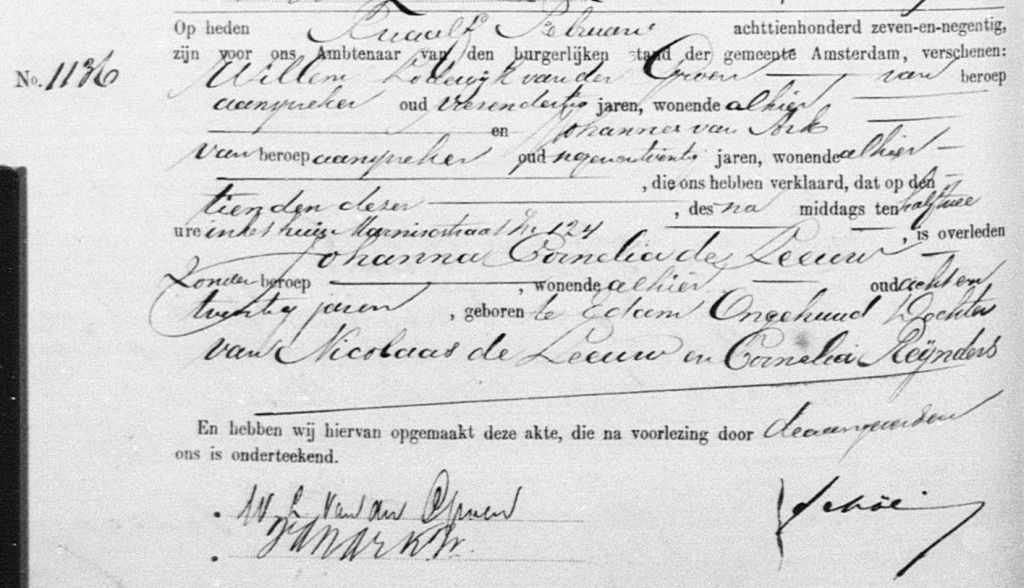 Op heden Twaalf Februari achttienhonderd zeven-en-negentig,
zijn voor ons Ambtenaar van den burgerlijken stand der gemeente Amsterdam, verschenen:
No. 1136 Willem Lodewijk van der Groen van beroep
aanspreker oud vierendertig jaren, wonende alhier
en Johannes van Ark
van beroep aanspreker oud negenentwintig jaren, wonende alhier
, die ons hebben verklaard, dat op den
tienden dezer , des na middags ten half twee
ure in het huis Marnixstraat No 124 , is overleden
Johanna Cornelia de Leeuw
zonder beroep , wonende alhier oud acht en
twintig jaren , geboren te Edam Ongehuwd Dochter
van Nicolaas de Leeuw en Cornelia Reijnders
En hebben wij hiervan opgemaakt deze akte, die na voorlezing door de aangevers en
ons is onderteekend.
W L van der Groen
J van Ark